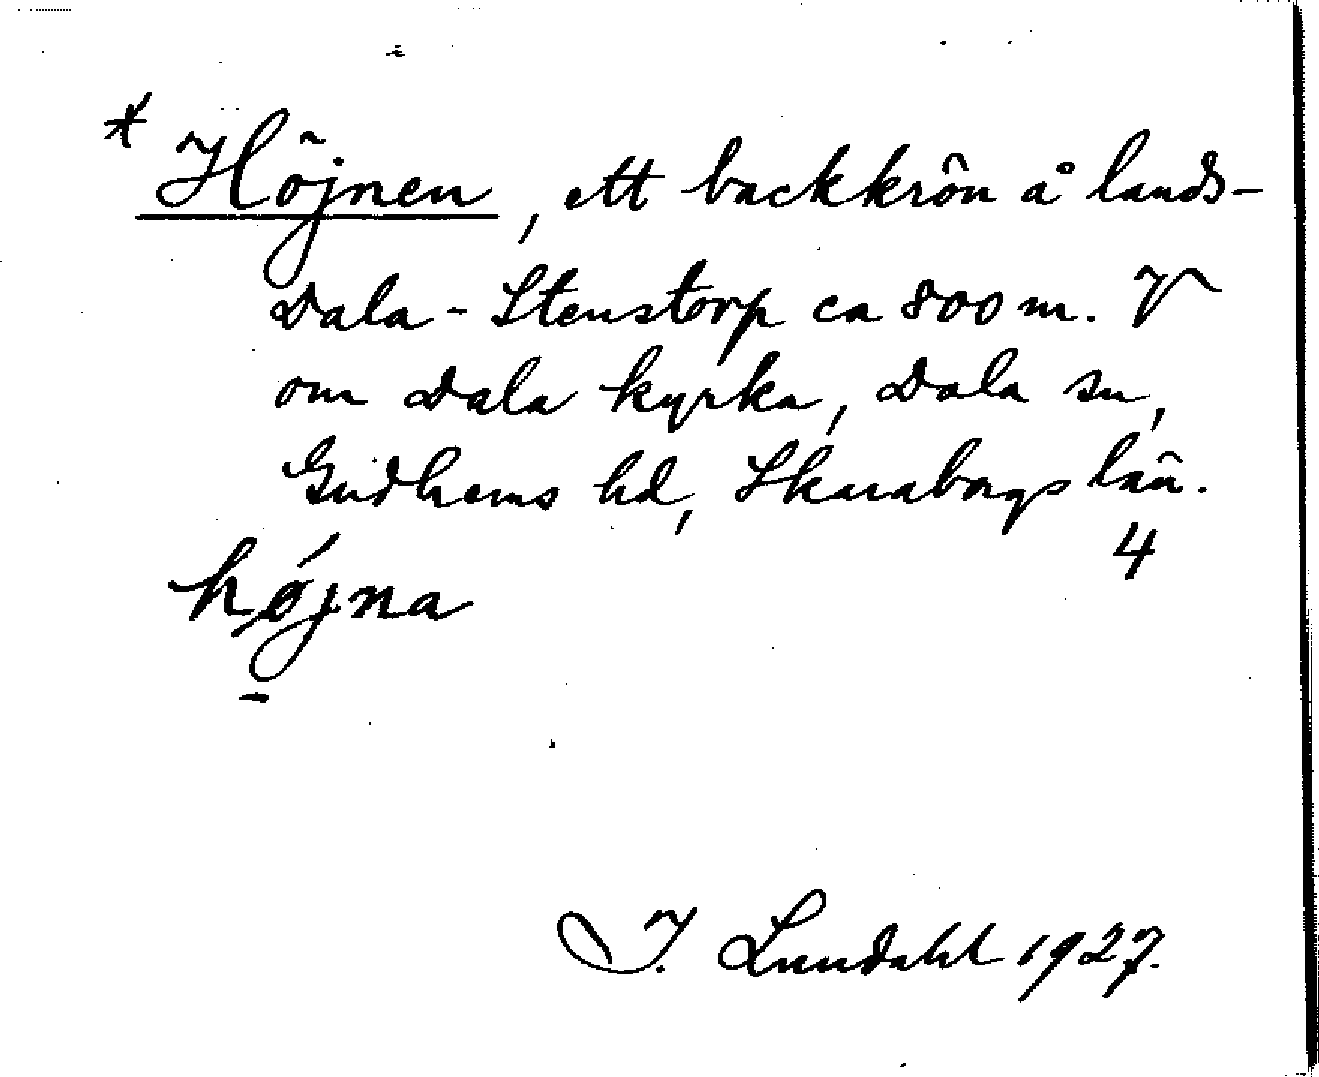 * Höjnen, ett backkrön å lands-
Dala - Stenstorp ca 800 m. V
om Dala kyrka, Dala sn,
Gudhems hd, Skaraborgs län.
4
hǿjna
I. Lundahl 1927.